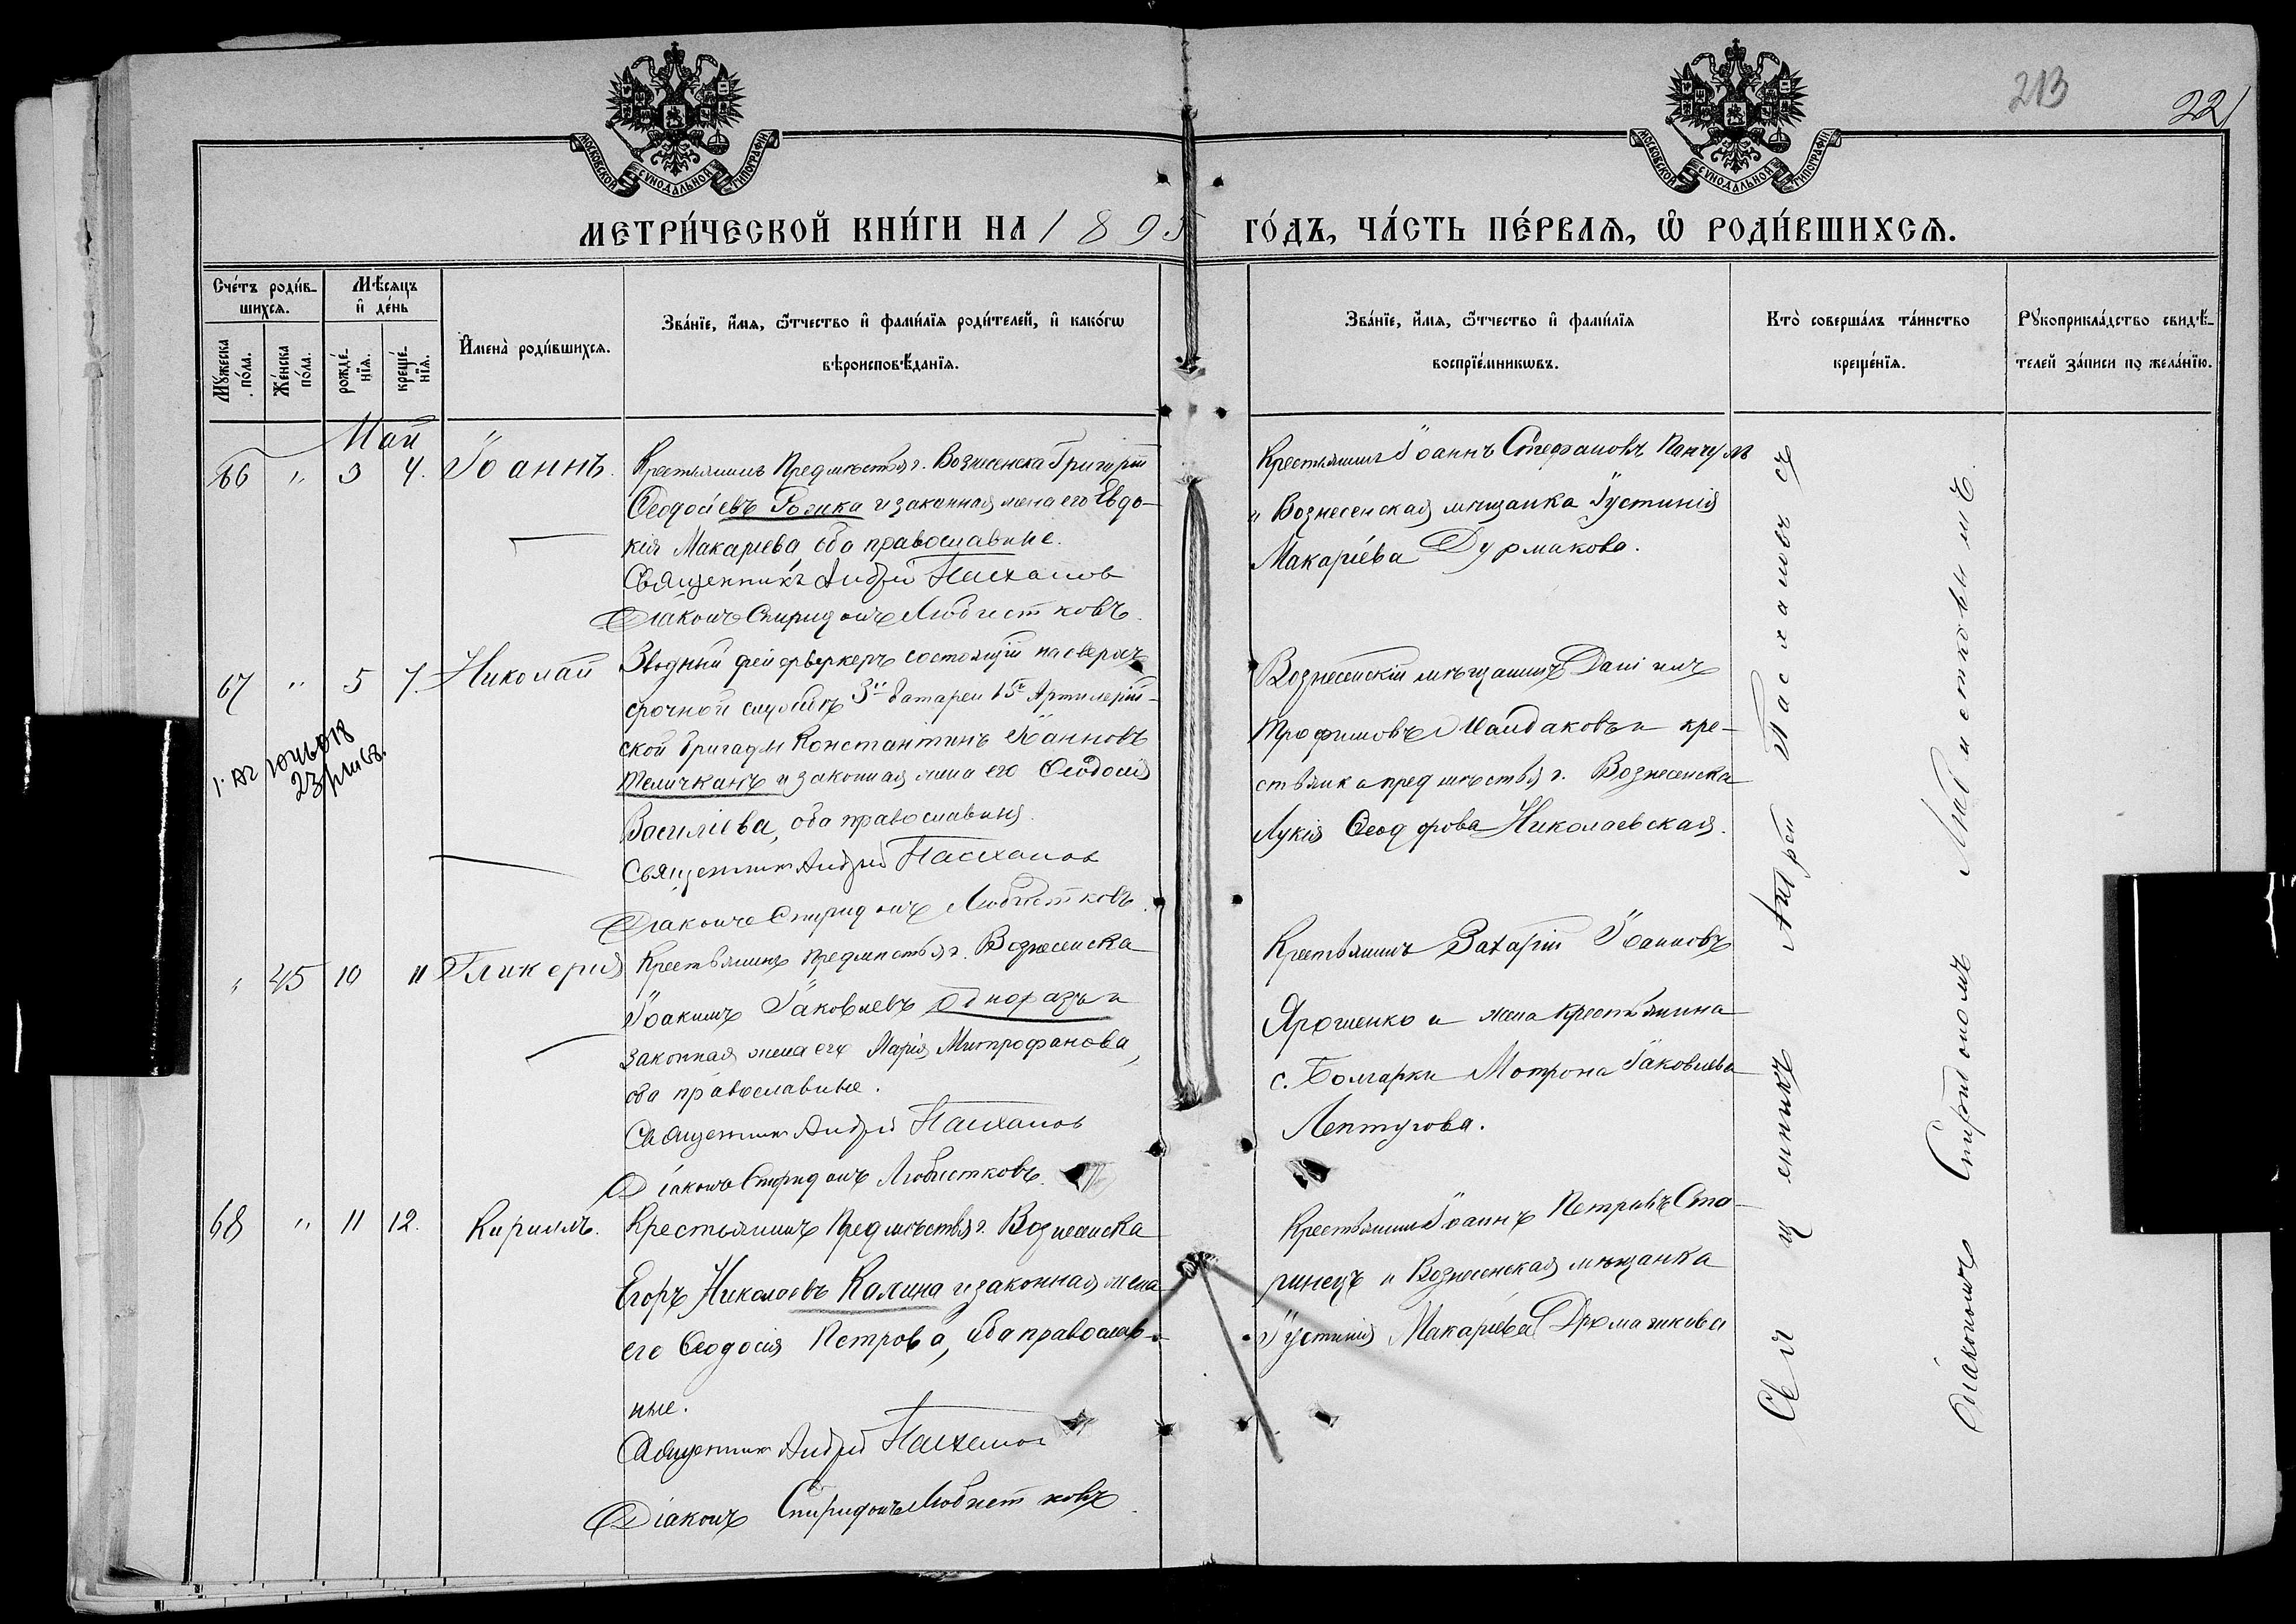 213
221
МОСКОВСКОЙ СѴНОДАЛЬНОЙ ТИПОГРАФІИ
МОСКОВСКОЙ СѴНОДАЛЬНОЙ ТИПОГРАФІИ
МЕТРИ́ЧЕСКОЙ КНИ́ГИ НА 1895 ГО́ДЪ, ЧА́СТЬ ПЕ́РВАѦ, Ѡ РОДИ́ВШИХСѦ.
Сче́тъ роди́в-
шихсѧ.
Мꙋ́жеска по́ла.
Же́нска по́ла.
Мѣ́сѧцъ
и҆ де́нь
рожде́-
нїѧ.
креще́-
нїѧ.
И҆мена̀ роди́вшихсѧ.
Зва́нїе, и҆́мѧ, ѻ҆́тчество и҆ фами́лїѧ роди́телей, и҆ како́гѡ
вѣроисповѣ́данїѧ.
Зва́нїе, и҆́мѧ, ѻ҆́тчество и҆ фами́лїѧ
воспрїе́мникѡвъ.
Кто̀ соверша́лъ та́инство
креще́нїѧ.
Рꙋкоприкла́дство свидѣ́-
телей за́писи по жела́нїю.
Май
66 " 3 4. Іоаннъ.
Крестьянинъ Предмѣстья г. Вознесенска Григорій
Ѳеодосіевъ и законная жена его Евдо-
кія Макаріева, оба православные.
Священникъ Андрей Пасхаловъ
Діаконъ Спиридонъ Любистковъ.
Крестьянинъ Іоаннъ Стефановъ
и Вознесенская мѣщанка Іустинія
Макаріева Дурмакова.
67 " 5 7. Николай
фейерверкеръ состоящій на сверхъ
срочной службѣ 3й батареи 15й Артилерій-
ской бригады Константинъ Іоанновъ
Теличканъ и законная жена его Ѳеодосія
Василіева, оба православные.
Священникъ Андрей Пасхаловъ
Діаконъ Спиридонъ Любистковъ.
Вознесенскій мѣщанинъ Даніилъ
Трофимовъ Майдаковъ и кре-
стьянка предмѣстья г. Вознесенска
Лукія Ѳеодорова Николаевская.
" 45 10 11 Гликерія
Крестьянинъ предмѣстья г. Вознесенска
Іоакимъ Іаковлевъ Одноразъ и
законная жена его Марія Митрофанова,
оба православные.
Священникъ Андрей Пасхаловъ
Діаконъ Спиридонъ Любистковъ.
Крестьянинъ Захарій Іоанновъ
Ярошенко и жена крестьянина
с. Болгарки Мотрона Іаковлева
Лептугова.
68 " 11 12. Кириллъ.
Крестьянинъ Предмѣстья г. Вознесенска
Егоръ Николаевъ Калина и законная жена
его Ѳеодосія Петрова, оба православ-
ные.
Священникъ Андрей Пасхаловъ
Діаконъ Спиридонъ Любистковъ
Крестьянинъ Іоаннъ Петровъ Ста-
ринецъ и Вознесенская мѣщанка
Іустинія Макаріева
Священникъ Андрей Пасхаловъ съ
Діакономъ Спиридономъ Любистковымъ.